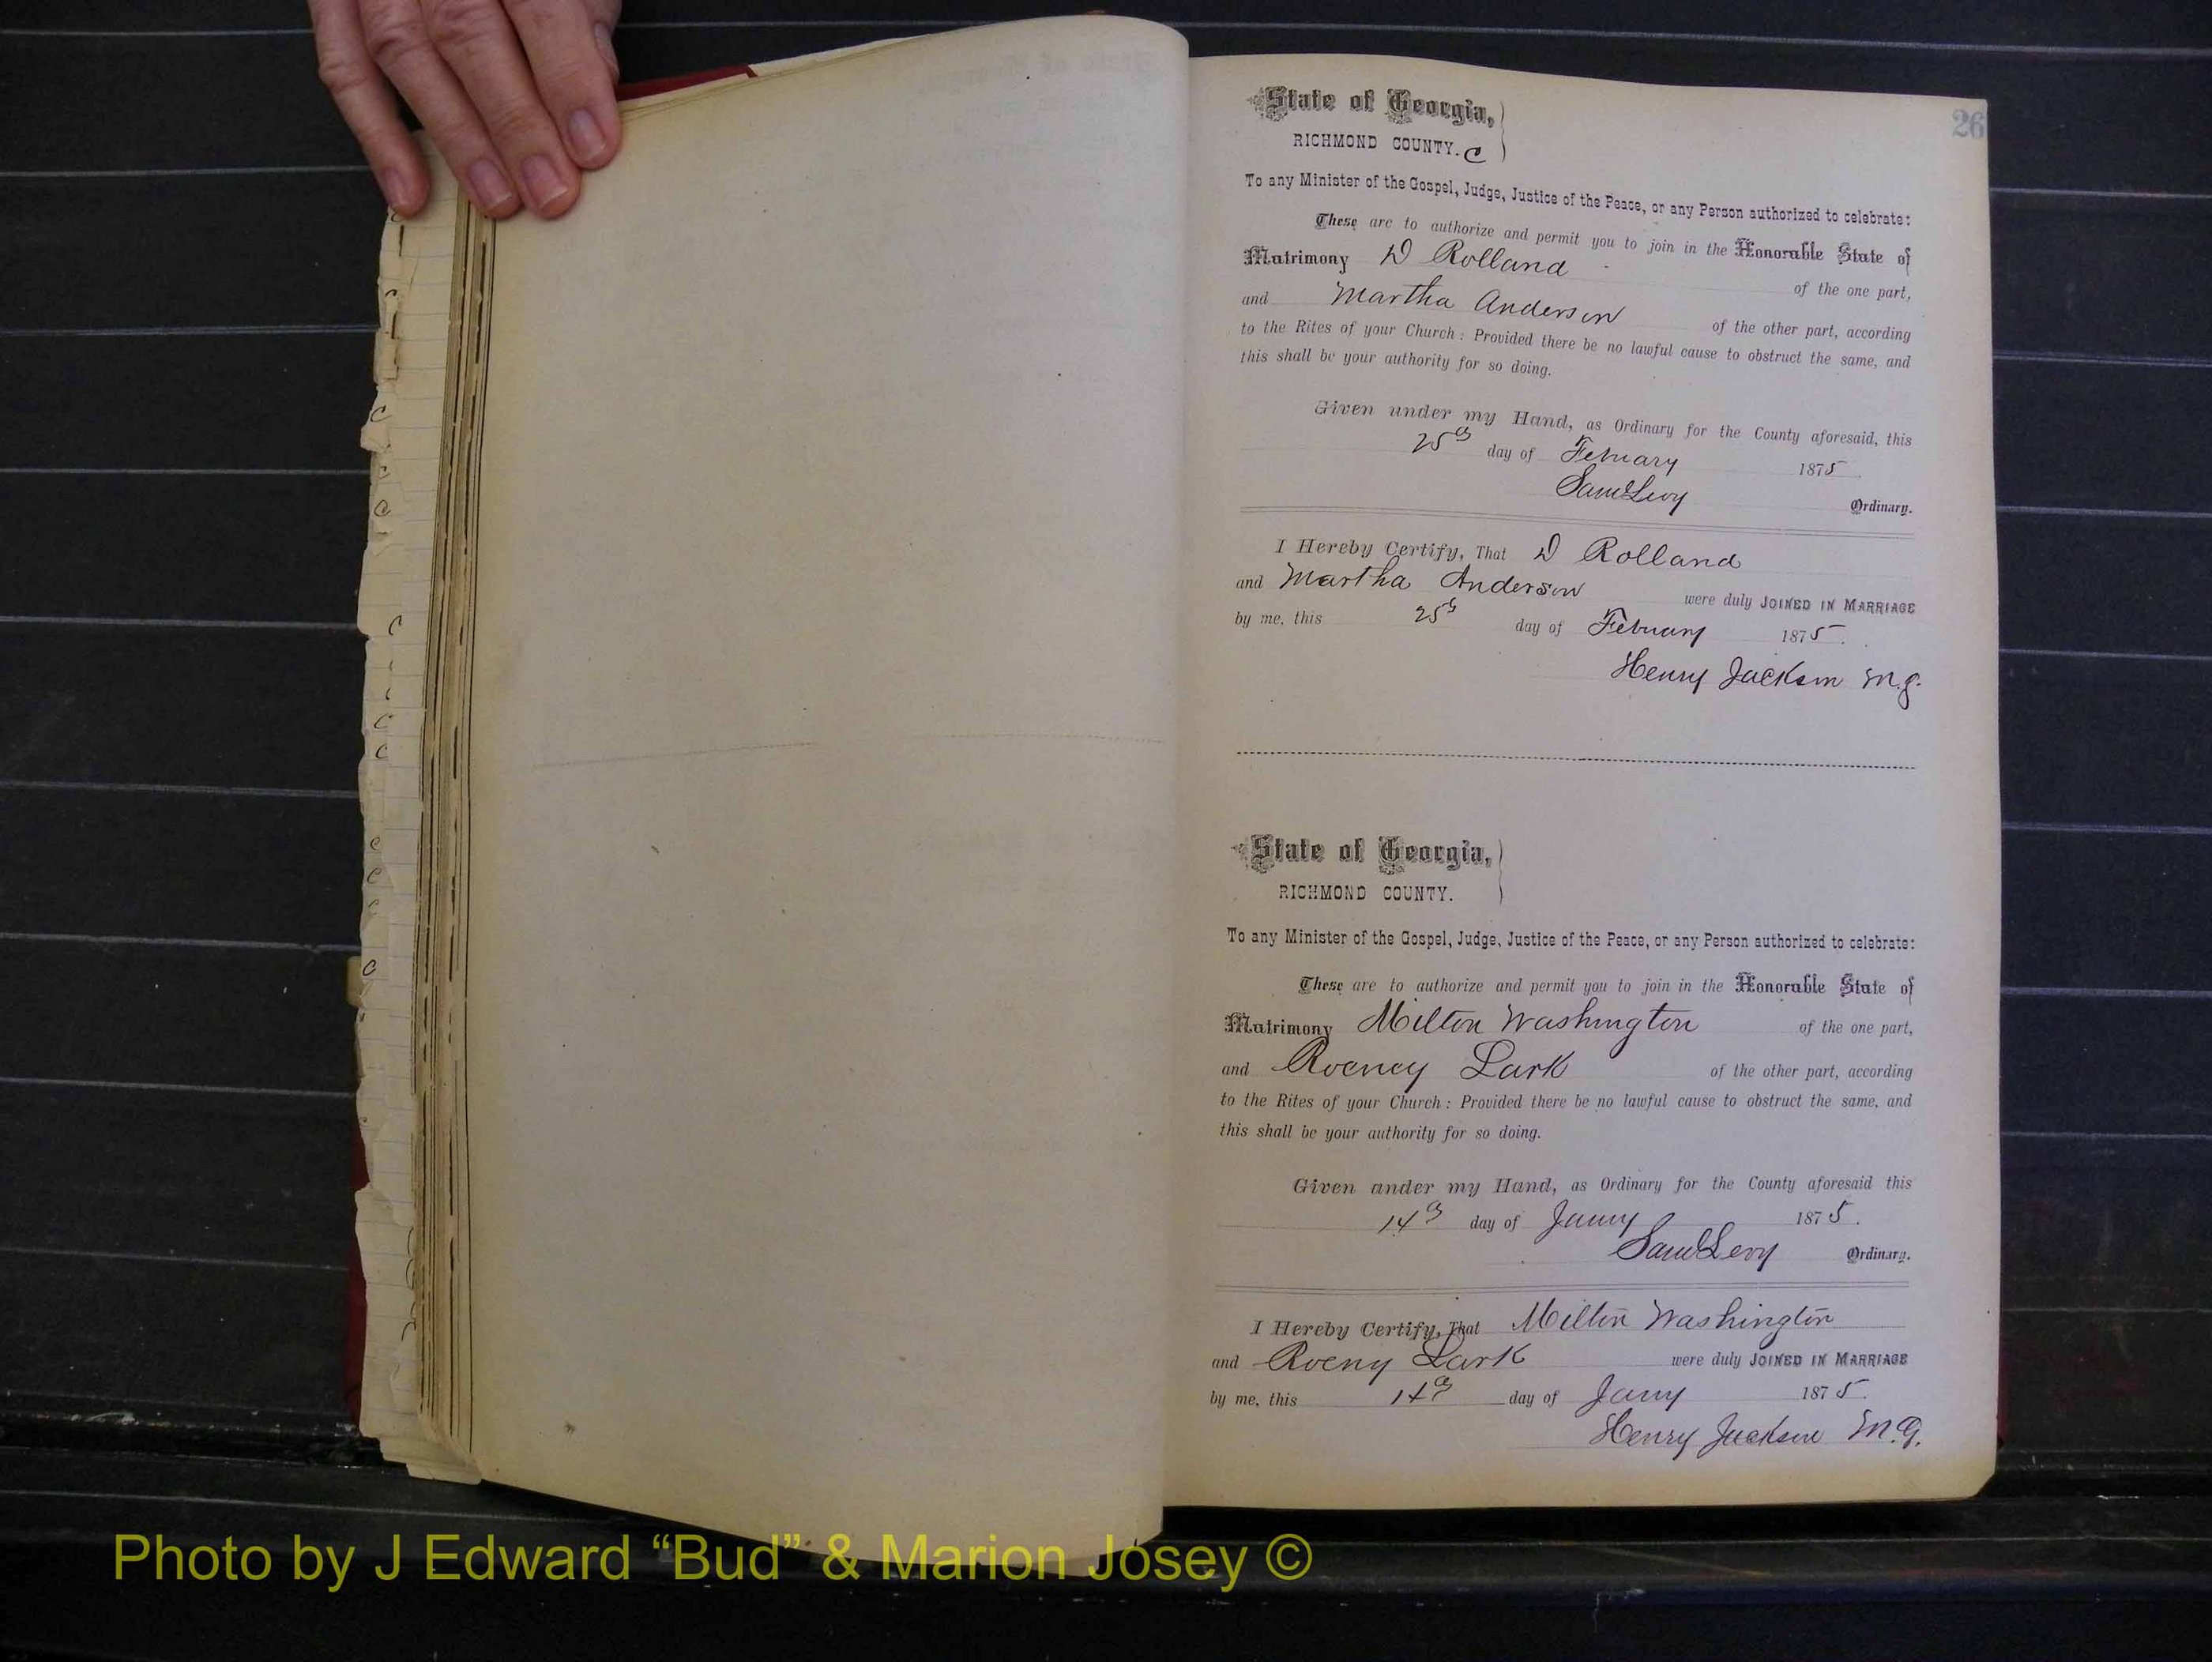 26
State of Georgia,
RICHMOND COUNTY. C
To any Minister of the Gospel, Judge, Justice of the Peace, or any Person authorized to celebrate:
These are to authorize and permit you to join in the Honorable State of
Matrimony D Rolland of the one part,
and Martha Anderson of the other part, according
to the Rites of your Church: Provided there be no lawful cause to obstruct the same, and
this shall be your authority for so doing.
Given under my Hand, as Ordinary for the County aforesaid, this
25th day of February 1875
Saml Levy Ordinary.
I Hereby Certify, That D Rolland
and Martha Anderson were duly JOINED IN MARRIAGE
by me, this 25th day of February 1875.
Henry Jackson M.G.
State of Georgia,
RICHMOND COUNTY.
To any Minister of the Gospel, Judge, Justice of the Peace, or any Person authorized to celebrate:
These are to authorize and permit you to join in the Honorable State of
Matrimony Milton Washington of the one part,
and Roeney Lark of the other part, according
to the Rites of your Church: Provided there be no lawful cause to obstruct the same, and
this shall be your authority for so doing.
Given under my Hand, as Ordinary for the County aforesaid this
14th day of Jany 1875.
Saml Levy Ordinary.
I Hereby Certify, That Milton Washington
and Roeny Lark were duly JOINED IN MARRIAGE
by me, this 14th day of Jany 1875.
Henry Jackson M.G.
Photo by J Edward “Bud” & Marion Josey ©